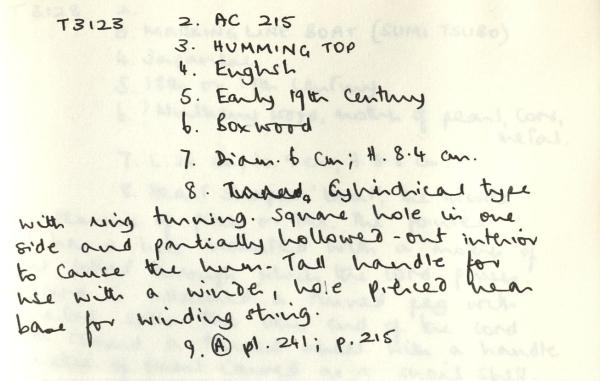 T3123 2. AC 215
3. HUMMING TOP
4. English
5. Early 19th Century
6. Boxwood
7. Diam. 6 cm; H. 8.4 cm.
8. Turned, Cylindrical type
with ring turning. Square hole in one
side and partially hollowed-out interior
to cause the hum. Tall handle for
use with a winder, hole pierced near
base for winding string.
9. Ⓐ pl. 241; p. 215